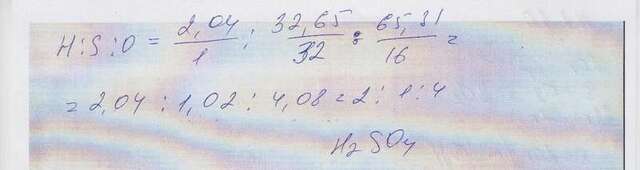 H:S:O = 2,04/1 : 32,65/32 : 65,31/16 =
= 2,04 : 1,02 : 4,08 = 2 : 1 : 4
H₂SO₄